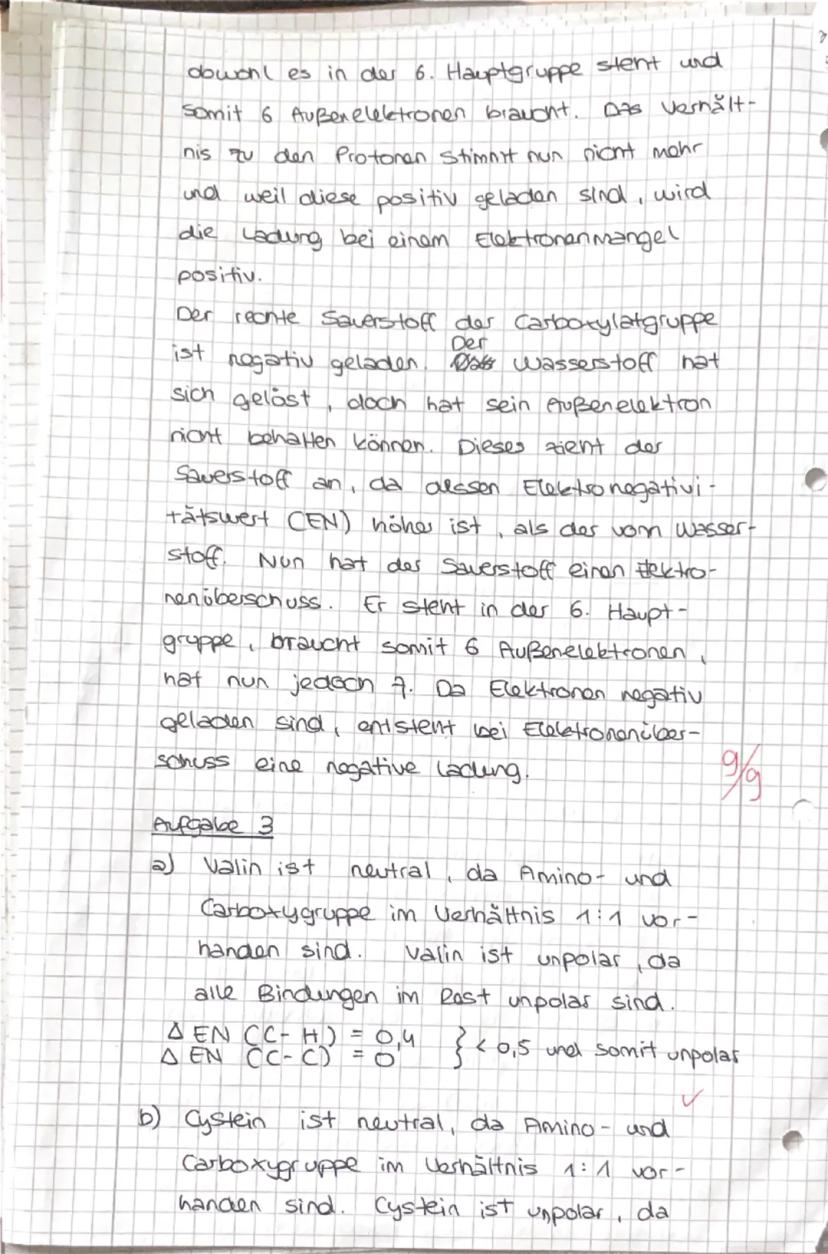 obwohl es in der 6. Hauptgruppe steht und
somit 6 Außenelektronen braucht. Das Verhält-
nis zu den Protonen stimmt nun nicht mehr
und weil diese positiv geladen sind, wird
die Ladung bei einem Elektronenmangel
positiv.
Der rechte Sauerstoff der Carboxylatgruppe
ist negativ geladen. Der Wasserstoff hat
sich gelöst, doch hat sein Außenelektron
nicht behalten können. Dieses zieht der
Sauerstoff an, da dessen Elektronegativi-
tätswert (EN) höher ist, als der vom Wasser-
stoff. Nun hat der Sauerstoff einen Elektro-
nenüberschuss. Er steht in der 6. Haupt-
gruppe, braucht somit 6 Außenelektronen,
hat nun jedoch 7. Da Elektronen negativ
geladen sind, entsteht bei Elektronenüber-
schuss eine negative Ladung.
9/9
Aufgabe 3
a) Valin ist neutral, da Amino- und
Carboxygruppe im Verhältnis 1:1 vor-
handen sind. Valin ist unpolar, da
alle Bindungen im Rest unpolar sind.
Δ EN (C-H) = 0,4
Δ EN (C-C) = 0 } < 0,5 und somit unpolar
b) Cystein ist neutral, da Amino- und
Carboxygruppe im Verhältnis 1:1 vor-
handen sind. Cystein ist unpolar, da